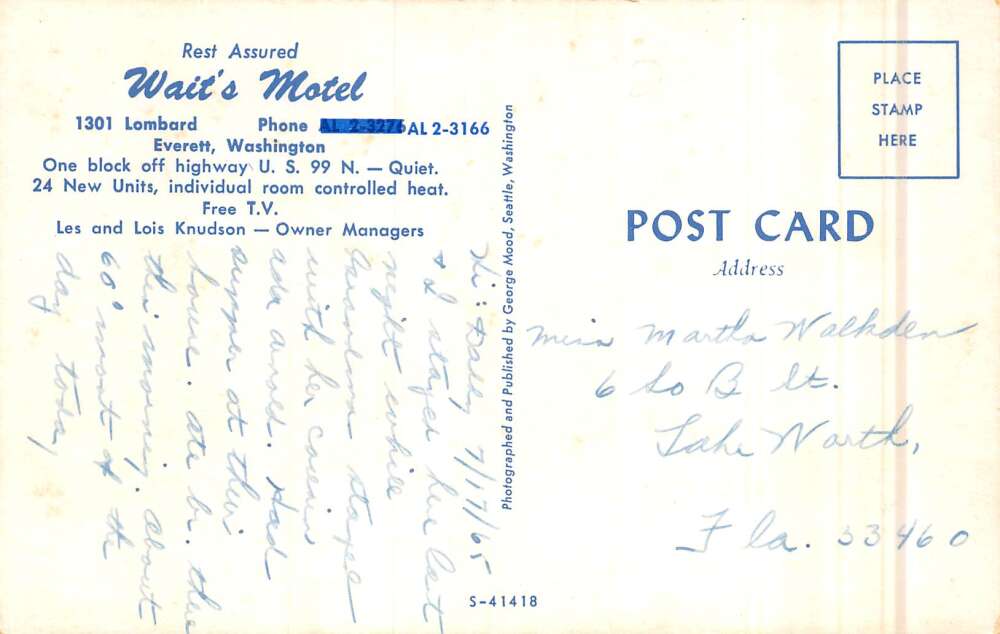 Rest Assured
Wait's Motel
1301 Lombard Phone AL 2-3276 AL 2-3166
Everett, Washington
One block off highway U. S. 99 N. — Quiet.
24 New Units, individual room controlled heat.
Free T.V.
Les and Lois Knudson — Owner Managers
Hi: 7/17/65
& I stayed here last
night while
Grandma stayed
with her cousin
ada arnold. Had
supper at their
house. ate br. there
this morning. about
60° most of the
day today
Photographed and Published by George Mood, Seattle, Washington
S-41418
PLACE
STAMP
HERE
POST CARD
Address
Miss Martha Walkden
6 So B St.
Lake Worth,
Fla. 33460